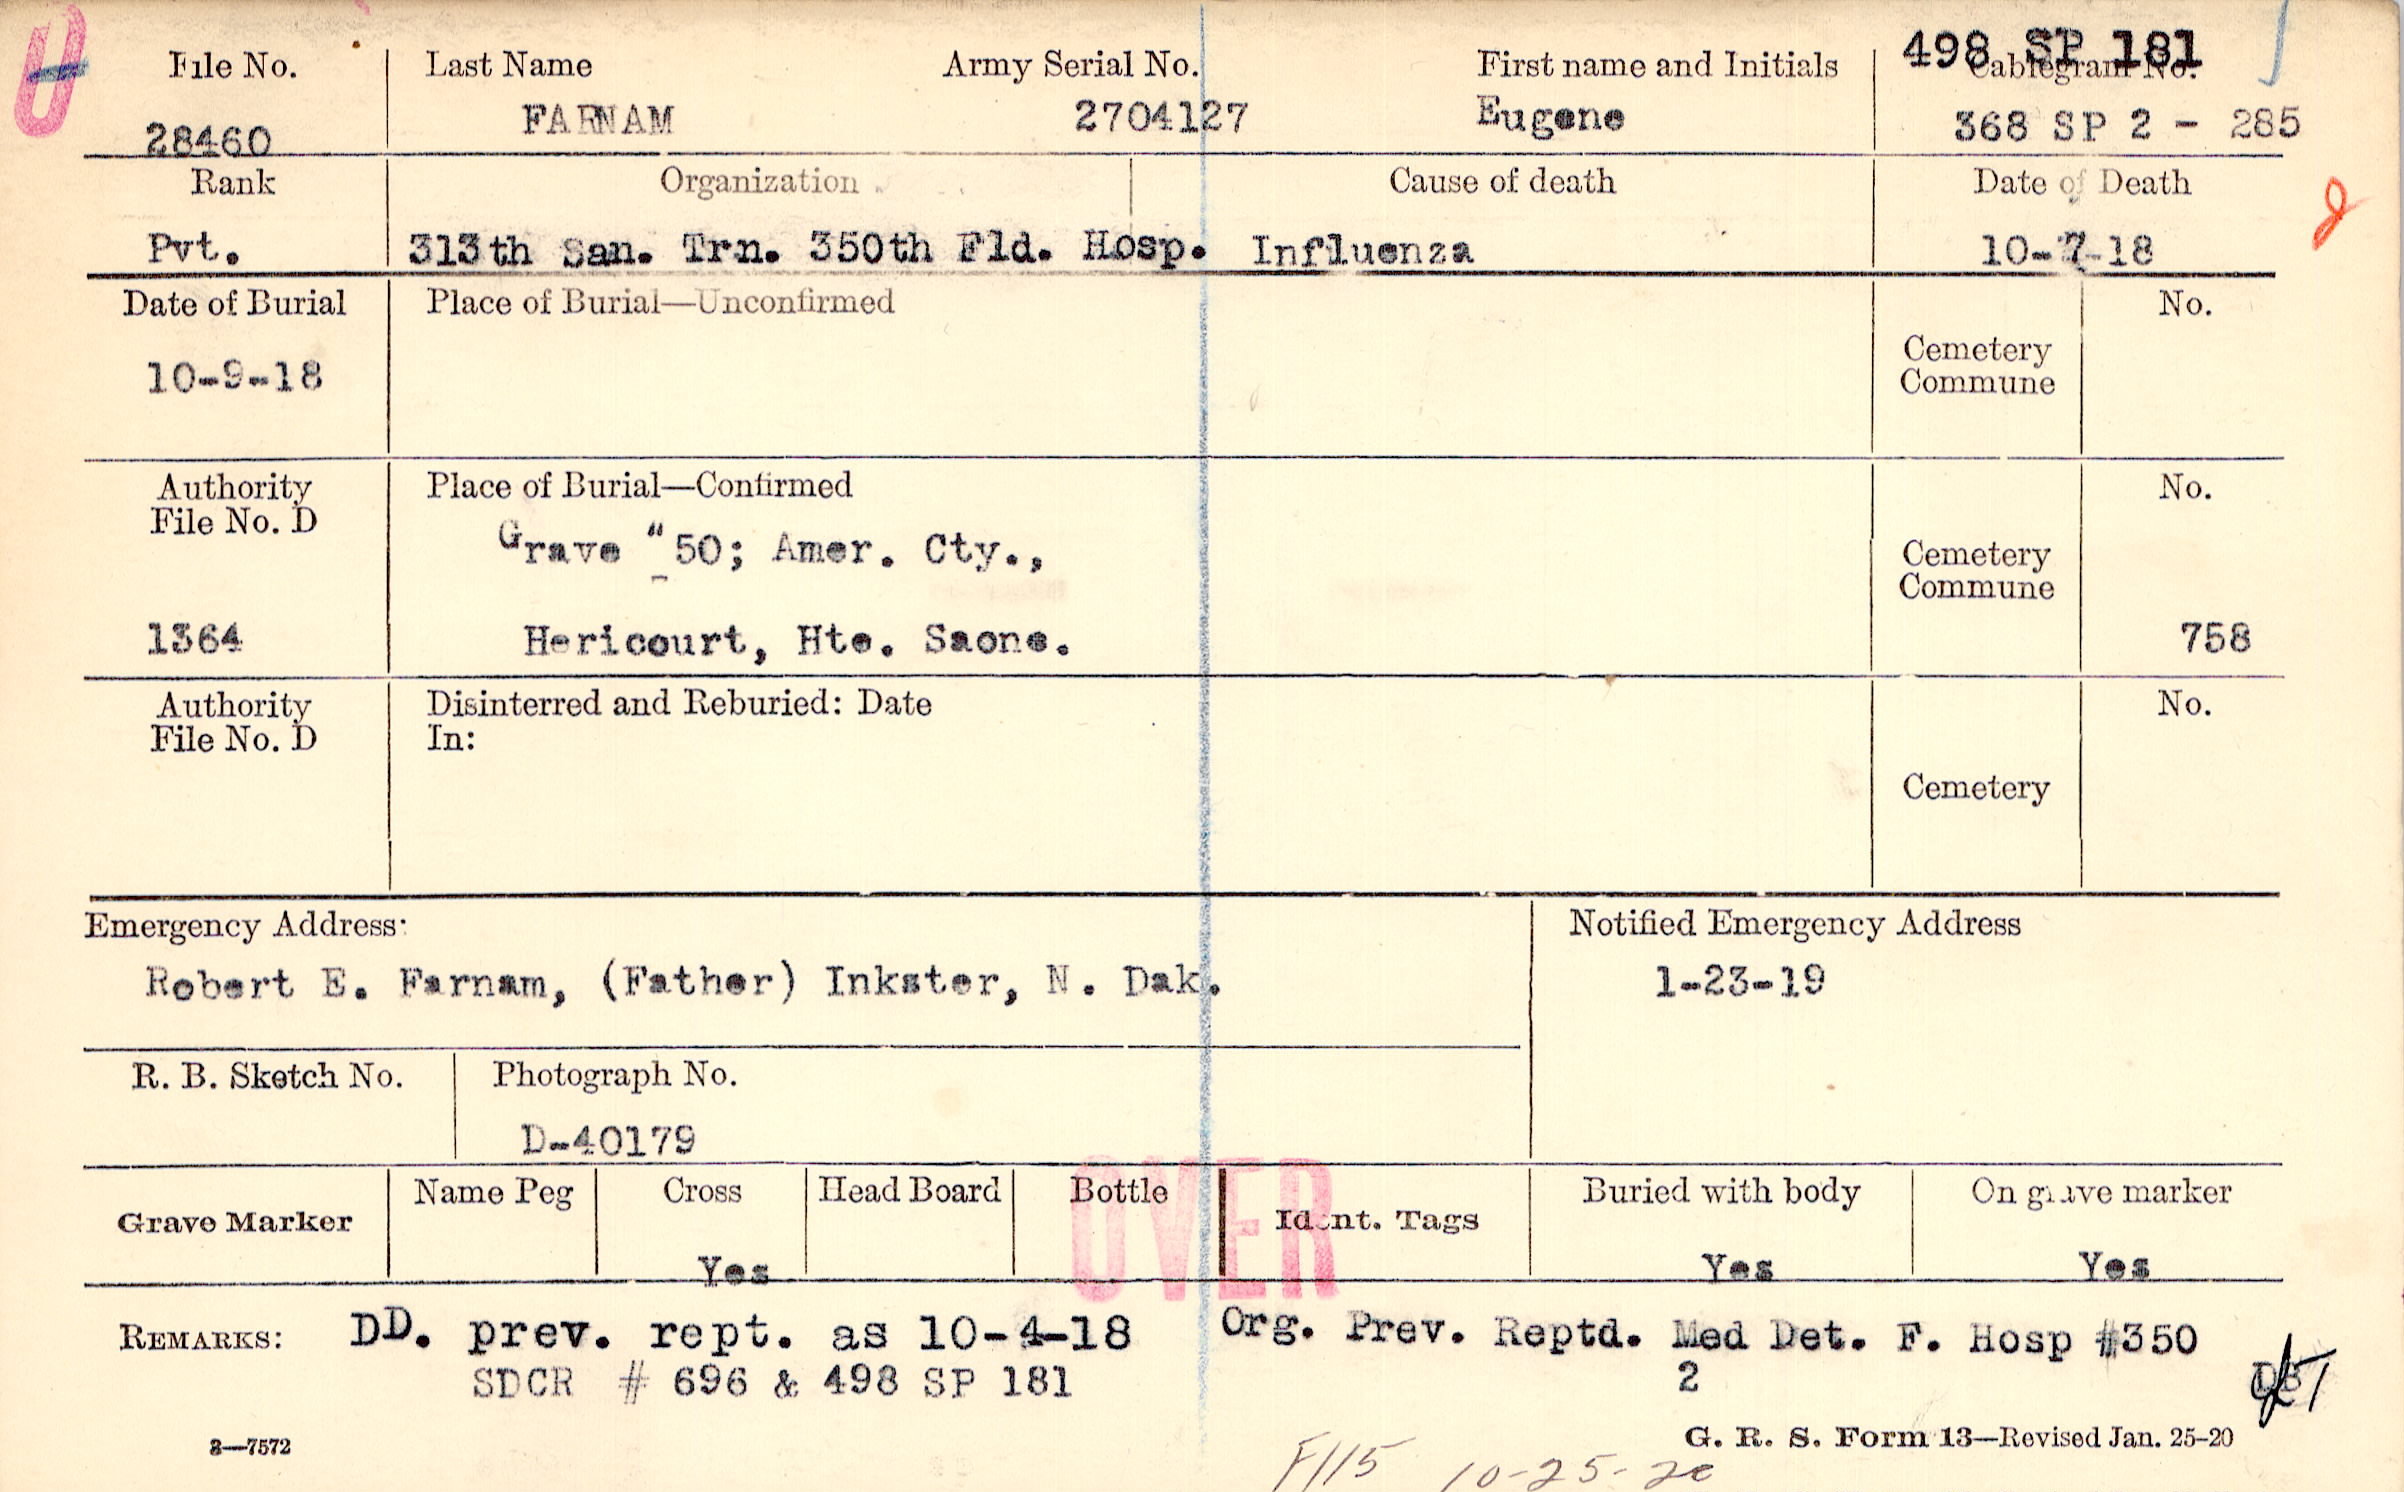 File No.
Last Name
Army Serial No.
First name and Initials
498 SP 181
Cablegram No.
28460
FARNAM
2704127
Eugene
368 SP 2 - 285
Rank
Organization
Cause of death
Date of Death
Pvt.
313th San. Trn. 350th Fld. Hosp.
Influenza
10-7-18
Date of Burial
Place of Burial—Unconfirmed
Cemetery
Commune
No.
10-9-18
Authority
File No. D
Place of Burial—Confirmed
Cemetery
Commune
No.
Grave " 50; Amer. Cty.,
1364
Hericourt, Hte. Saone.
758
Authority
File No. D
Disinterred and Reburied: Date
In:
Cemetery
No.
Emergency Address:
Notified Emergency Address
Robert E. Farnam, (Father) Inkster, N. Dak.
1-23-19
R. B. Sketch No.
Photograph No.
D-40179
Grave Marker
Name Peg
Cross
Head Board
Bottle
OVER
Ident. Tags
Buried with body
On grave marker
Yes
Yes
Yes
REMARKS:
DD. prev. rept. as 10-4-18
Org. Prev. Reptd. Med Det. F. Hosp #350
SDCR # 696 & 498 SP 181
2
3—7572
G. R. S. Form 13—Revised Jan. 25-20
F115 10-25-20